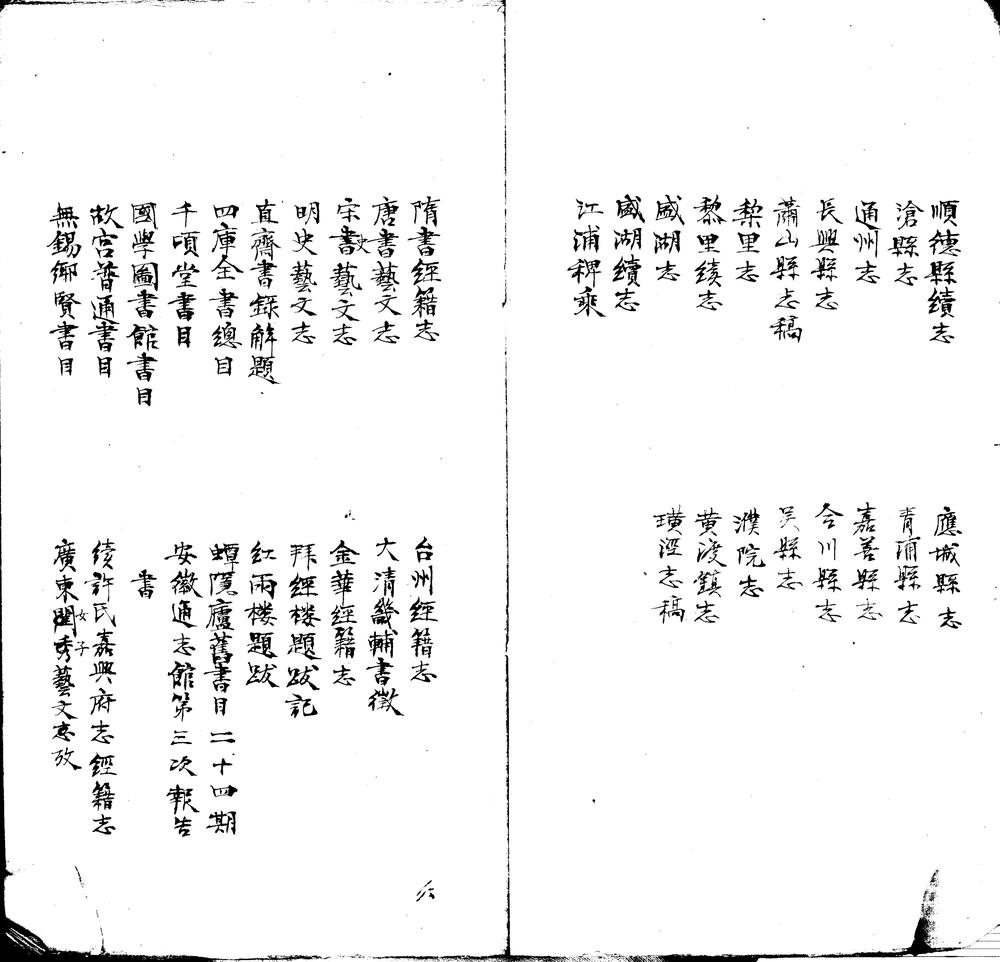 順德縣續志
滄縣志
通州志
長興縣志
蕭山縣志稿
梨里志
黎里续志
盛湖志
盛湖續志
江浦稗乘
應城縣志
青浦縣志
嘉善縣志
合川縣志
吴縣志
濮院志
黄渡鎮志
璜涇志稿
隋書經籍志
唐書藝文志
宋史藝文志
明史藝文志
直齋書録解題
四庫全書總目
千頃堂書目
國學圖書館書目
故宫普通書目
無錫鄉賢書目
台州經籍志
大清畿輔書徵
金華經籍志
拜經楼題跋記
紅雨楼題跋
蟫隱廬舊書目二十四期
安徽通志館第三次報告
書
续許氏嘉興府志經籍志
廣東女子藝文志攷